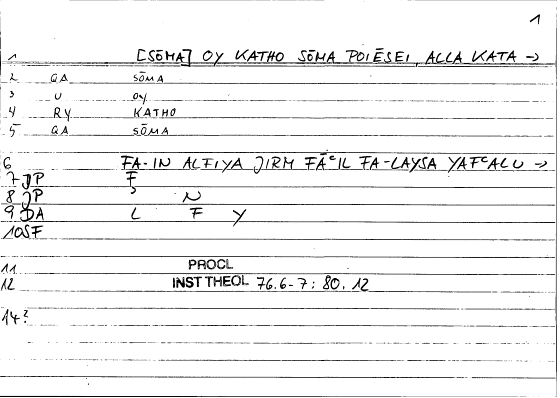 1
1 [SŌMA] OY KATHO SŌMA POIĒSEI, ALLA KATA →
2 QA SŌMA
3 U OY
4 RY KATHO
5 QA SŌMA
6 FA-IN ALFIYA JIRM FĀʿIL FA-LAYSA YAFʿALU →
7 JP F
8 JP ʾ N
9 DA L F Y
10 SF
11 PROCL
12 INST THEOL 76.6-7: 80.12
14?